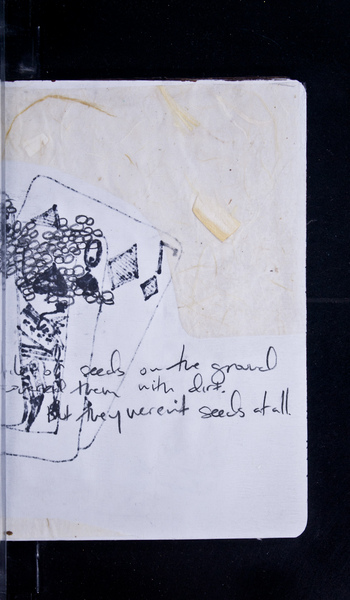 seeds on the ground
them with dirt.
But they weren't seeds at all.